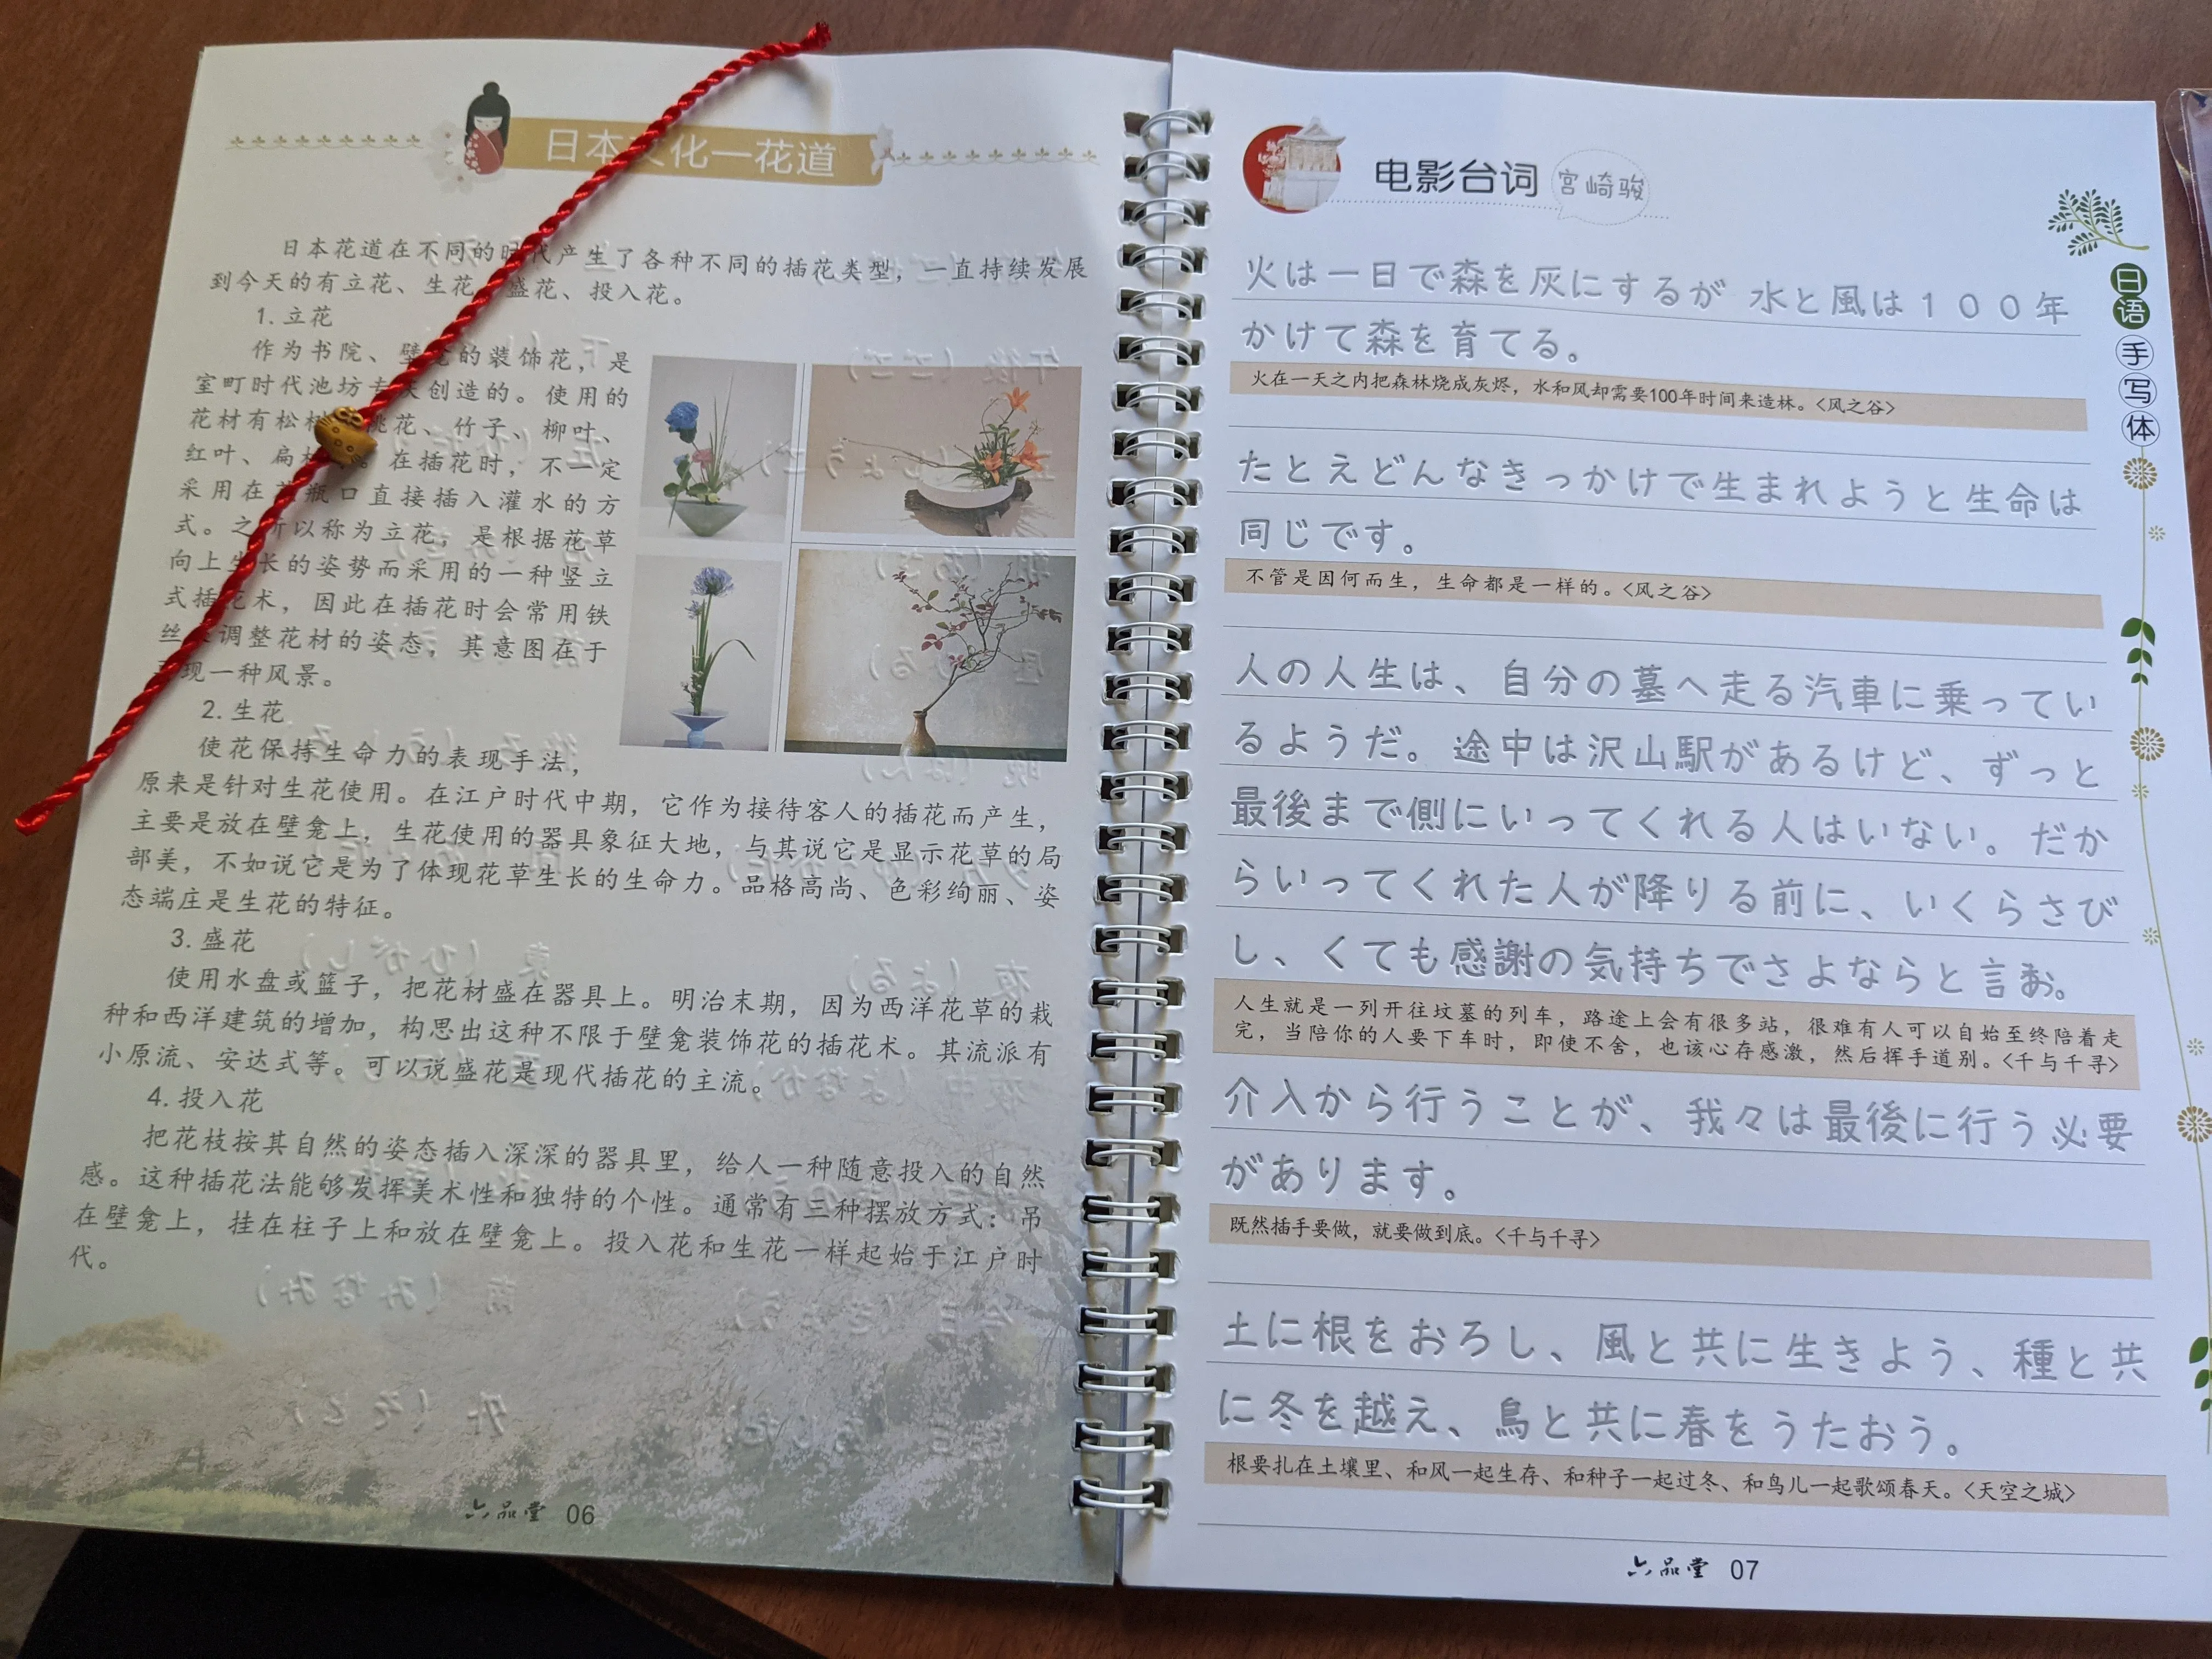 日本文化一花道
日本花道在不同的时代产生了各种不同的插花类型，一直持续发展
到今天的有立花、生花、盛花、投入花。
1. 立花
作为书院、壁龛的装饰花，是
室町时代池坊专 创造的。使用的
花材有松树 桃花、竹子、柳叶、
红叶、扁柏 。在插花时，不一定
采用在花瓶口直接插入灌水的方
式。之所以称为立花，是根据花草
向上生长的姿势而采用的一种竖立
式插花术，因此在插花时会常用铁
丝 调整花材的姿态，其意图在于
现一种风景。
2. 生花
使花保持生命力的表现手法，
原来是针对生花使用。在江户时代中期，它作为接待客人的插花而产生，
主要是放在壁龛上，生花使用的器具象征大地，与其说它是显示花草的局
部美，不如说它是为了体现花草生长的生命力。品格高尚、色彩绚丽、姿
态端庄是生花的特征。
3. 盛花
使用水盘或篮子，把花材盛在器具上。明治末期，因为西洋花草的栽
种和西洋建筑的增加，构思出这种不限于壁龛装饰花的插花术。其流派有
小原流、安达式等。可以说盛花是现代插花的主流。
4. 投入花
把花枝按其自然的姿态插入深深的器具里，给人一种随意投入的自然
感。这种插花法能够发挥美术性和独特的个性。通常有三种摆放方式：吊
在壁龛上，挂在柱子上和放在壁龛上。投入花和生花一样起始于江户时
代。
六品堂 06
电影台词 宫崎骏
火は一日で森を灰にするが 水と風は１００年
かけて森を育てる。
火在一天之内把森林烧成灰烬，水和风却需要100年时间来造林。<风之谷>
たとえどんなきっかけで生まれようと生命は
同じです。
不管是因何而生，生命都是一样的。<风之谷>
人の人生は、自分の墓へ走る汽車に乗ってい
るようだ。途中は沢山駅があるけど、ずっと
最後まで側にいってくれる人はいない。だか
らいってくれた人が降りる前に、いくらさび
し、くても感謝の気持ちでさよならと言お。
人生就是一列开往坟墓的列车，路途上会有很多站，很难有人可以自始至终陪着走
完，当陪你的人要下车时，即使不舍，也该心存感激，然后挥手道别。<千与千寻>
介入から行うことが、我々は最後に行う必要
があります。
既然插手要做，就要做到底。<千与千寻>
土に根をおろし、風と共に生きよう、種と共
に冬を越え、鳥と共に春をうたおう。
根要扎在土壤里、和风一起生存、和种子一起过冬、和鸟儿一起歌颂春天。<天空之城>
六品堂 07
日语手写体